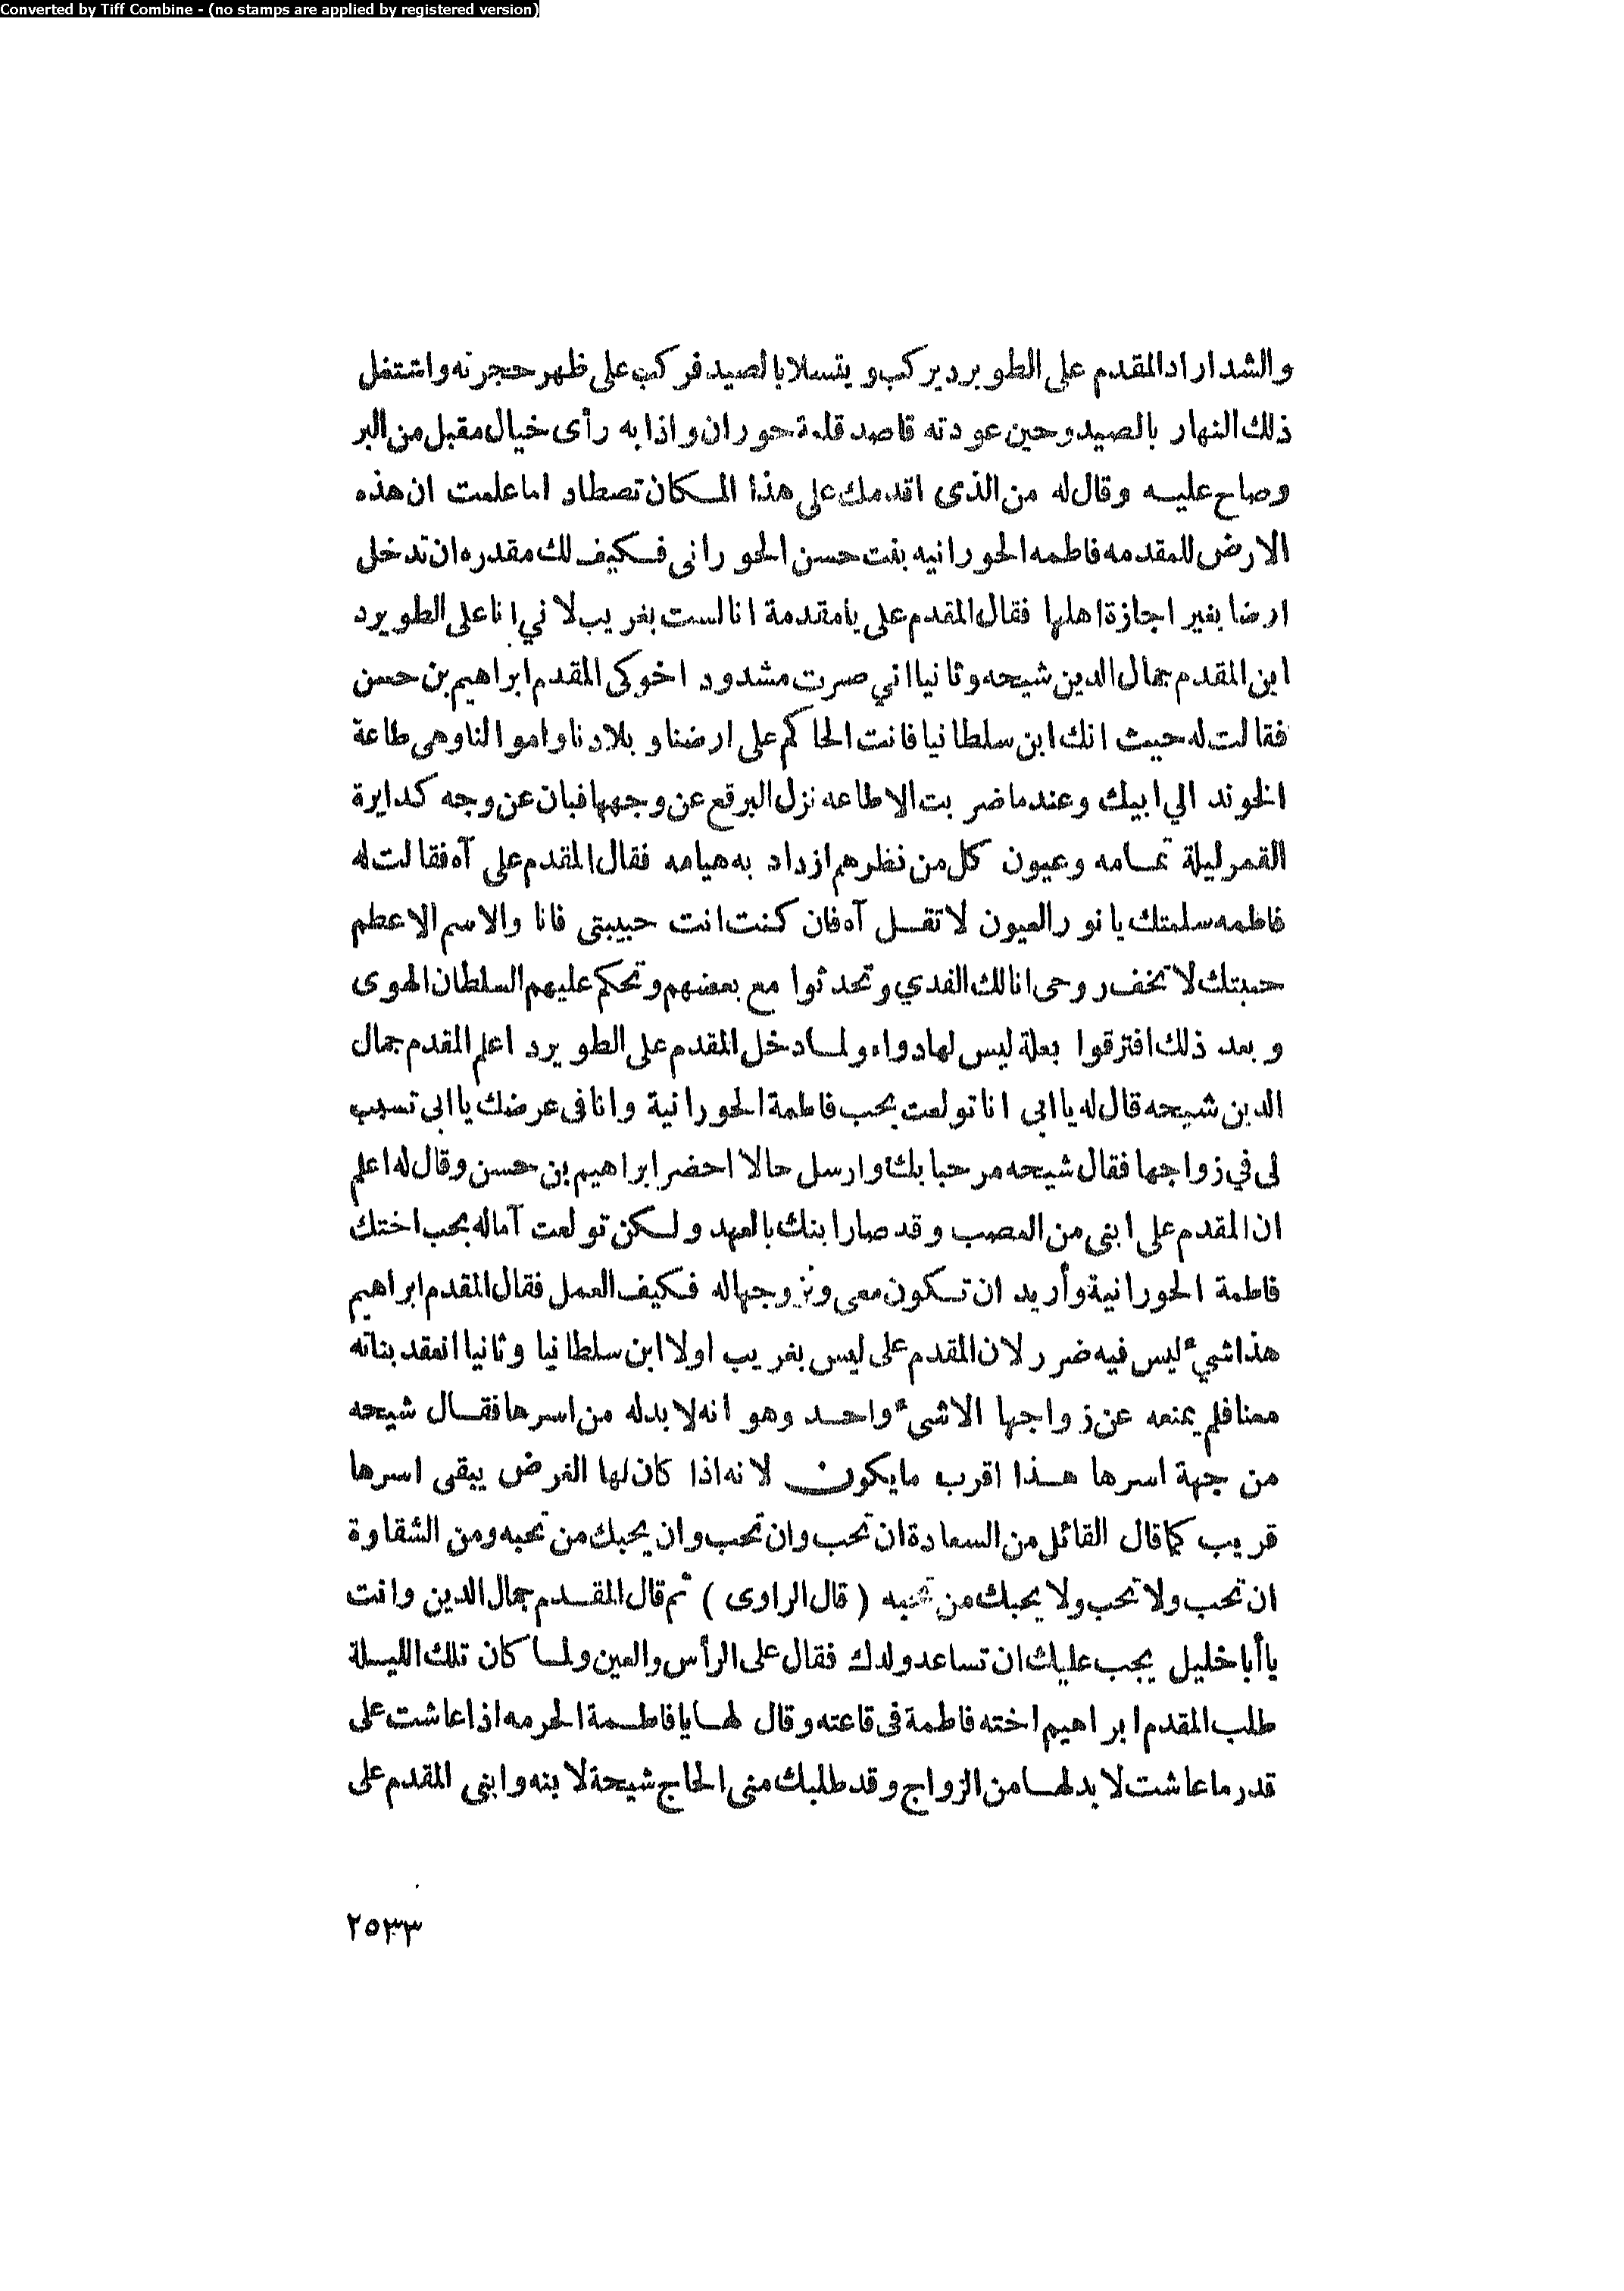 Converted by Tiff Combine - (no stamps are applied by registered version)
والشد اراد المقدم على الطويرد يركب ويتسلا بالصيد فركب على ظهر حجرته واشتغل
ذلك النهار بالصيد وحين عودته قاصد قلعة حوران واذا به رأى خيال مقبل من البر
وصاح عليه وقال له من الذى اقدمك على هذا المكان تصطاد اما علمت ان هذه
الارض للمقدمه فاطمه الحورانيه بنت حسن الحورانى فكيف لك مقدره ان تدخل
ارضا بغير اجازة اهلها فقال المقدم على يامقدمة انا لست بغريب لاني انا على الطويرد
ابن المقدم جمال الدين شيحه وثانيا اني صرت مشدود اخوكى المقدم ابراهيم بن حسن
فقالت له حيث انك ابن سلطانيا فانت الحاكم على ارضنا وبلادنا واموالنا وهى طاعة
الخوند الي ابيك وعندما ضربت الاطاعه نزل البرقع عن وجهها فبان عن وجه كدايرة
القمر ليلة تمامه وعيون كل من نظرهم ازداد به هيامه فقال المقدم على آه فقالت له
فاطمه سلمتك يانور العيون لاتقل آه فان كنت انت حبيبتى فانا والاسم الاعظم
حبيتك لا تخف روحى انا لك الفدي وتحدثوا مع بعضهم وتحكم عليهم السلطان الهوى
وبعد ذلك افترقوا بعلة ليس لها دواء ولما دخل المقدم على الطويرد اعلم المقدم جمال
الدين شيحه قال له يا ابى انا تولعت بحب فاطمة الحورانية وانا فى عرضك يا ابى تسبب
لى في زواجها فقال شيحه مرحبا بك وارسل حالا احضر ابراهيم بن حسن وقال له اعلم
ان المقدم على ابنى من العصب وقد صار ابنك بالعهد ولكن تولعت آماله بحب اختك
فاطمة الحورانية وأريد ان تكون معى ونزوجها له فكيف العمل فقال المقدم ابراهيم
هذا شيء ليس فيه ضرر لان المقدم على ليس بغريب اولا ابن سلطانيا وثانيا انعقد بناته
معنا فلم يمنعه عن زواجها الا شىء واحد وهو انه لا بد له من اسرها فقال شيحه
من جهة اسرها هذا اقرب مايكون لانه اذا كان لها الغرض يبقى اسرها
قريب كما قال القائل من السعادة ان تحب وان تحب وان يحبك من تحبه ومن الشقاوة
ان تحب ولا تحب ولا يحبك من تحبه ( قال الراوى ) ثم قال المقدم جمال الدين وانت
يا أبا خليل يجب عليك ان تساعد ولدك فقال على الرأس والعين ولما كان تلك الليلة
طلب المقدم ابراهيم اخته فاطمة فى قاعته وقال لها يا فاطمة الحرمه اذا عاشت على
قدر ما عاشت لا بد لها من الزواج وقد طلبك منى الحاج شيحة لابنه وابنى المقدم على
٢٥٣٣